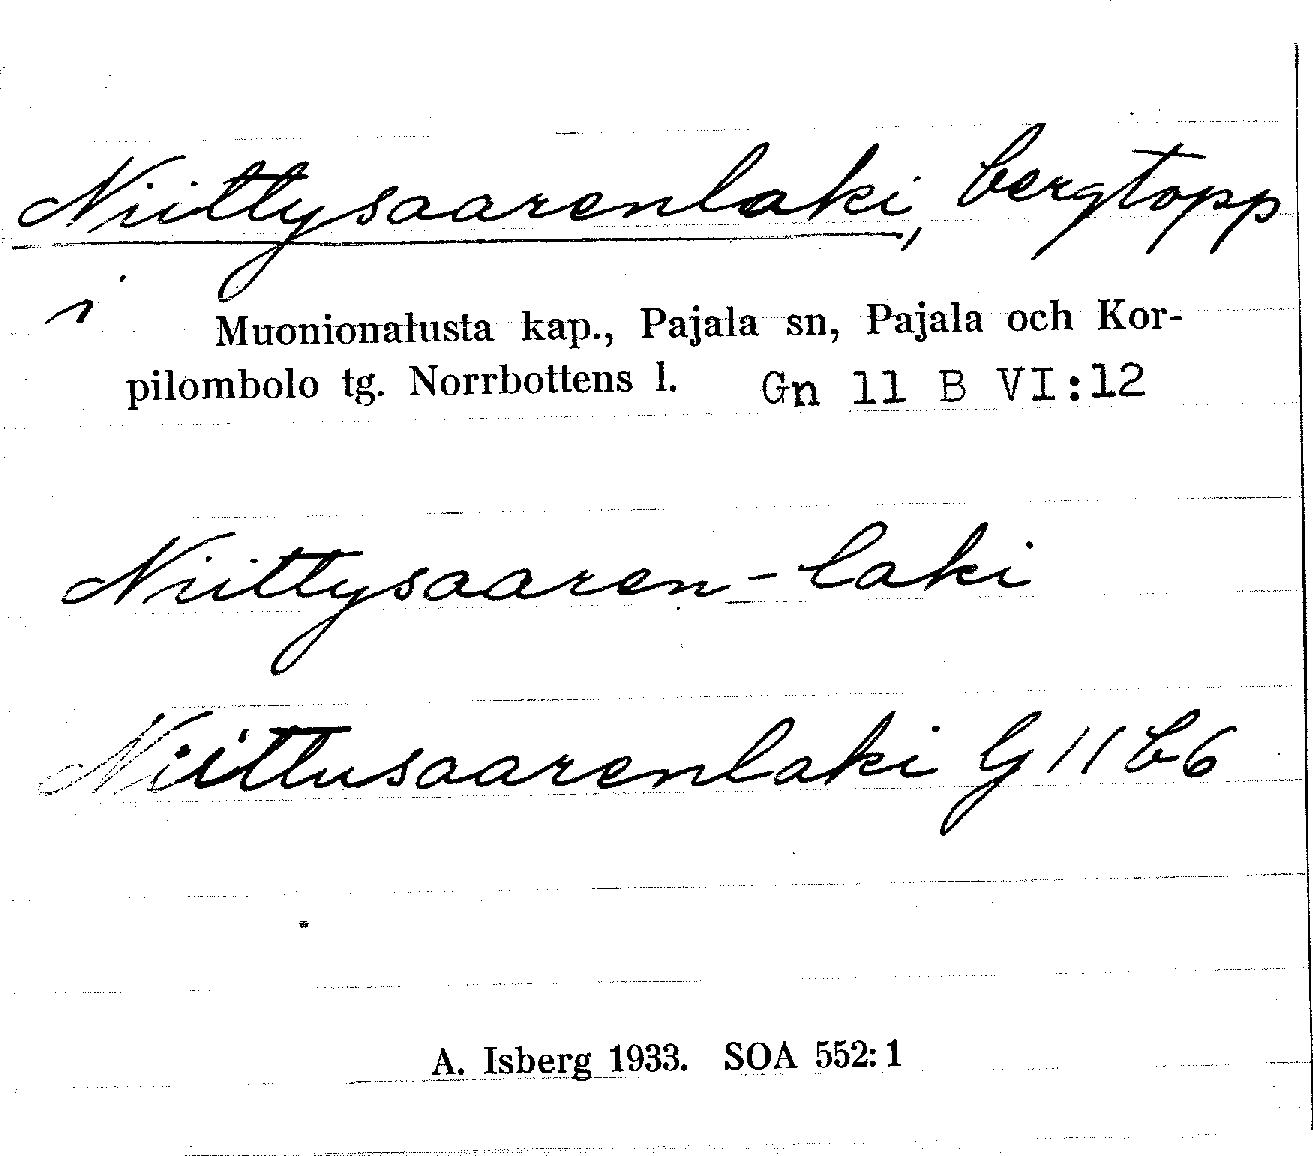 Niittysaarenlaki, bergtopp
i
Muonionalusta kap., Pajala sn, Pajala och Kor-
pilombolo tg. Norrbottens l. Gn 11 B VI:12
Niittysaaren-laki
Niittusaarenlaki G 11 b 6
A. Isberg 1933. SOA 552:1